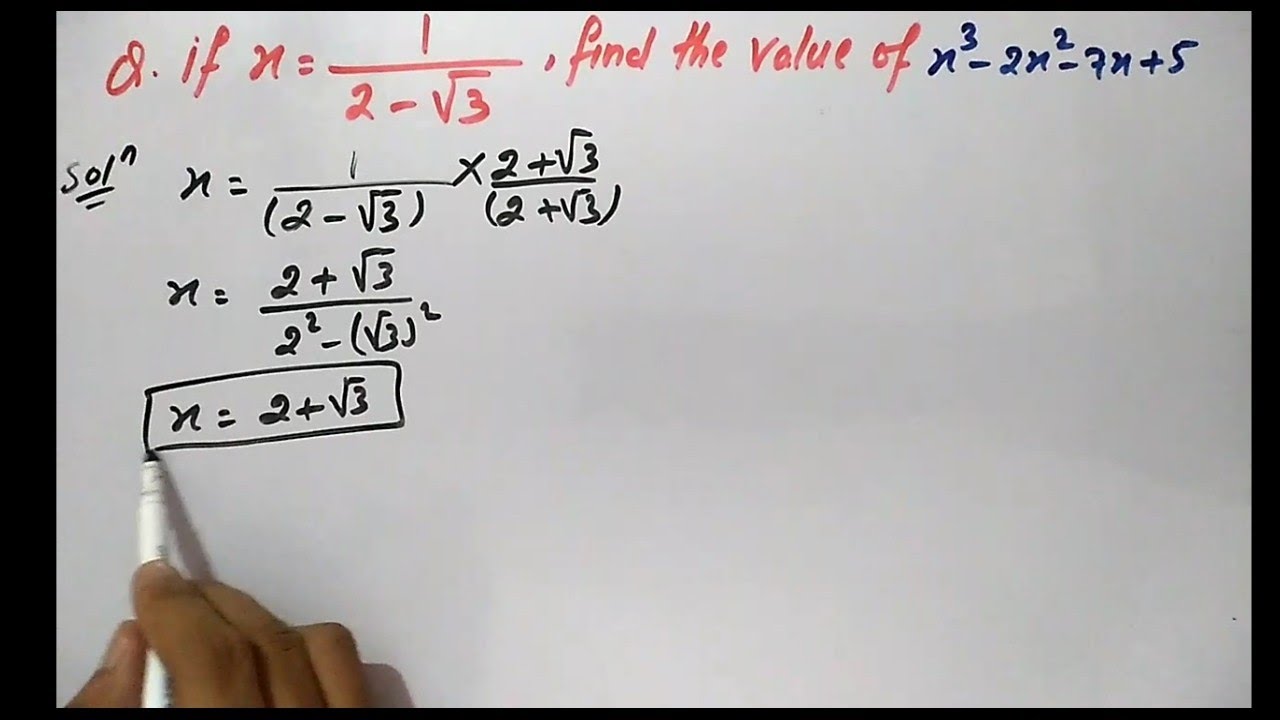 Q. if x = 1/(2 - √3), find the value of x³ - 2x² - 7x + 5
Solⁿ x = 1/(2 - √3) × 2 + √3/(2 + √3)
x = 2 + √3/2² - (√3)²
x = 2 + √3